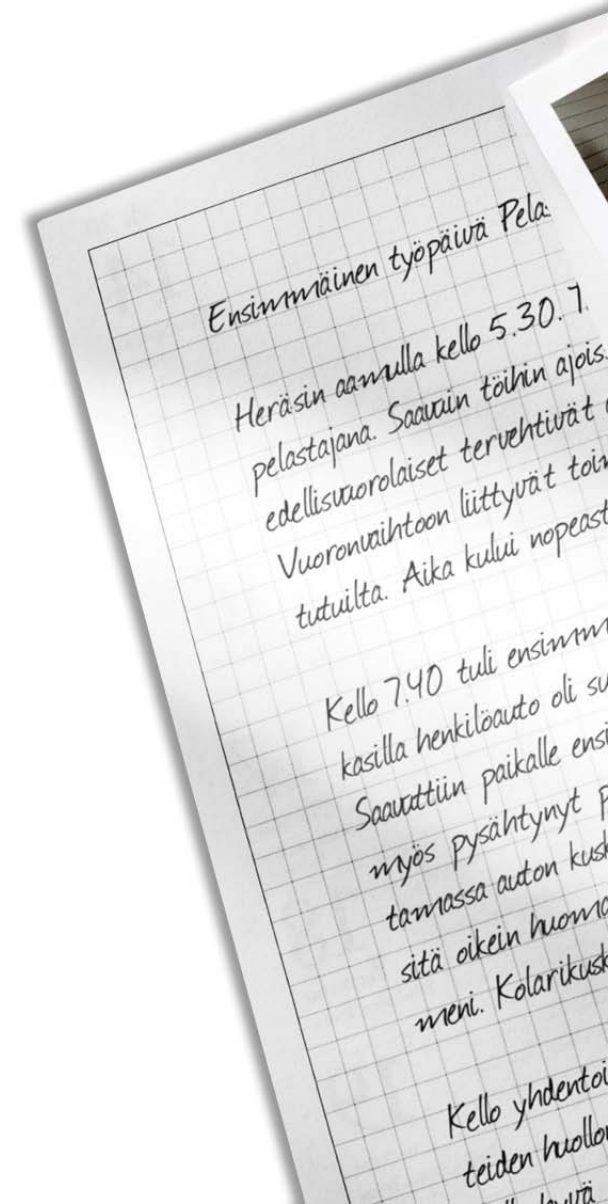 Ensimmäinen työpäivä Pela
Heräsin aamulla kello 5.30.
pelastajana. Saavuin töihin ajois
edellisvuorolaiset tervehtivät
Vuoronvaihtoon liittyvät toim
tutuilta. Aika kului nopeast
Kello 7.40 tuli ensimm
kasilla henkilöauto oli su
Saavuttiin paikalle ensi
myös pysähtynyt p
tamassa auton kusk
sitä oikein huoma
meni. Kolarikusk
Kello yhdentoi
teiden huollon